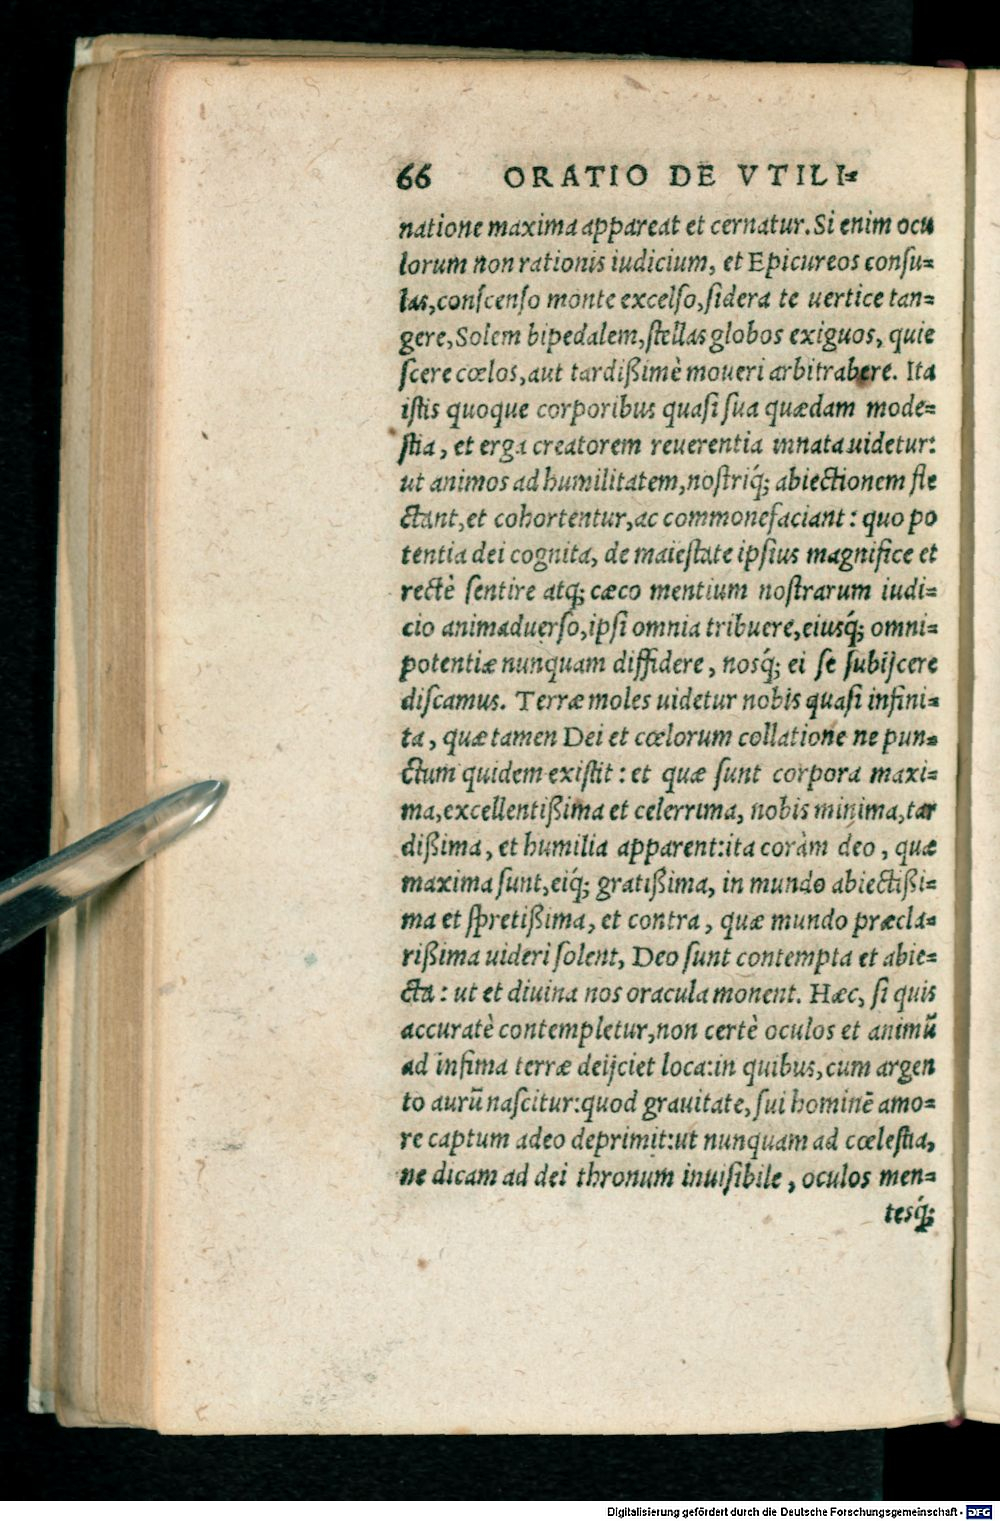 66 ORATIO DE VTILI=
natione maxima appareat et cernatur. Si enim ocu
lorum non rationis iudicium, et Epicureos consu=
las, conscenso monte excelso, sidera te uertice tan=
gere, Solem bipedalem, stellas globos exiguos, quie
scere cœlos, aut tardißimè moueri arbitrabere. Ita
istis quoque corporibus quasi sua quædam mode=
stia, et erga creatorem reuerentia innata uidetur:
ut animos ad humilitatem, nostriq́; abiectionem fle
ctant, et cohortentur, ac commonefaciant: quo po
tentia dei cognita, de maiestate ipsius magnifice et
rectè sentire atq; cæco mentium nostrarum iudi=
cio animaduerso, ipsi omnia tribuere, eiusq́; omni=
potentiæ nunquam diffidere, nosq́; ei se subijcere
discamus. Terræ moles uidetur nobis quasi infini=
ta, quæ tamen Dei et cœlorum collatione ne pun=
ctum quidem existit: et quæ sunt corpora maxi=
ma, excellentißima et celerrima, nobis minima, tar
dißima, et humilia apparent: ita coràm deo, quæ
maxima sunt, eiq́; gratißima, in mundo abiectißi=
ma et spretißima, et contra, quæ mundo præcla=
rißima uideri solent, Deo sunt contempta et abie=
cta: ut et diuina nos oracula monent. Hæc, si quis
accuratè contempletur, non certè oculos et animũ
ad infima terræ deijciet loca: in quibus, cum argen
to aurũ nascitur: quod grauitate, sui hominẽ amo=
re captum adeo deprimit: ut nunquam ad cœlestia,
ne dicam ad dei thronum inuisibile, oculos men=
tesq́;
Digitalisierung gefördert durch die Deutsche Forschungsgemeinschaft - DFG